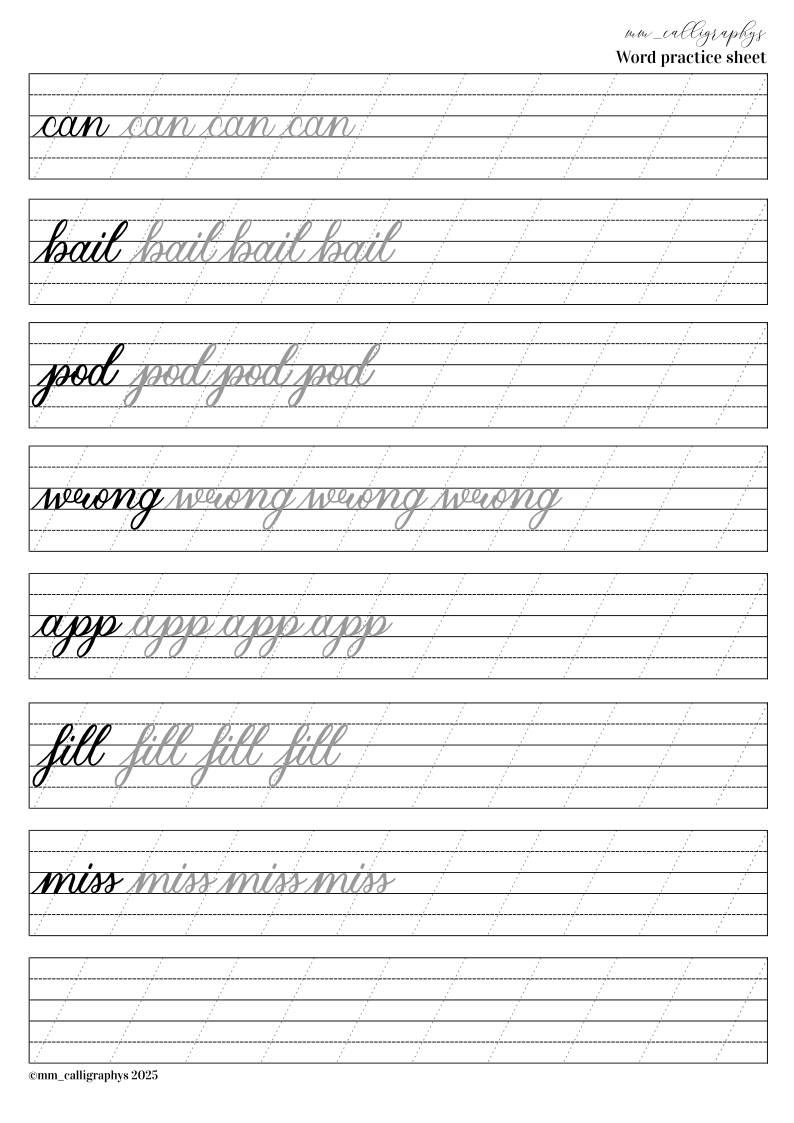 mm_calligraphys
Word practice sheet
can can can can
bail bail bail bail
pod pod pod pod
wrong wrong wrong wrong
app app app app
fill fill fill fill
miss miss miss miss
©mm_calligraphys 2025